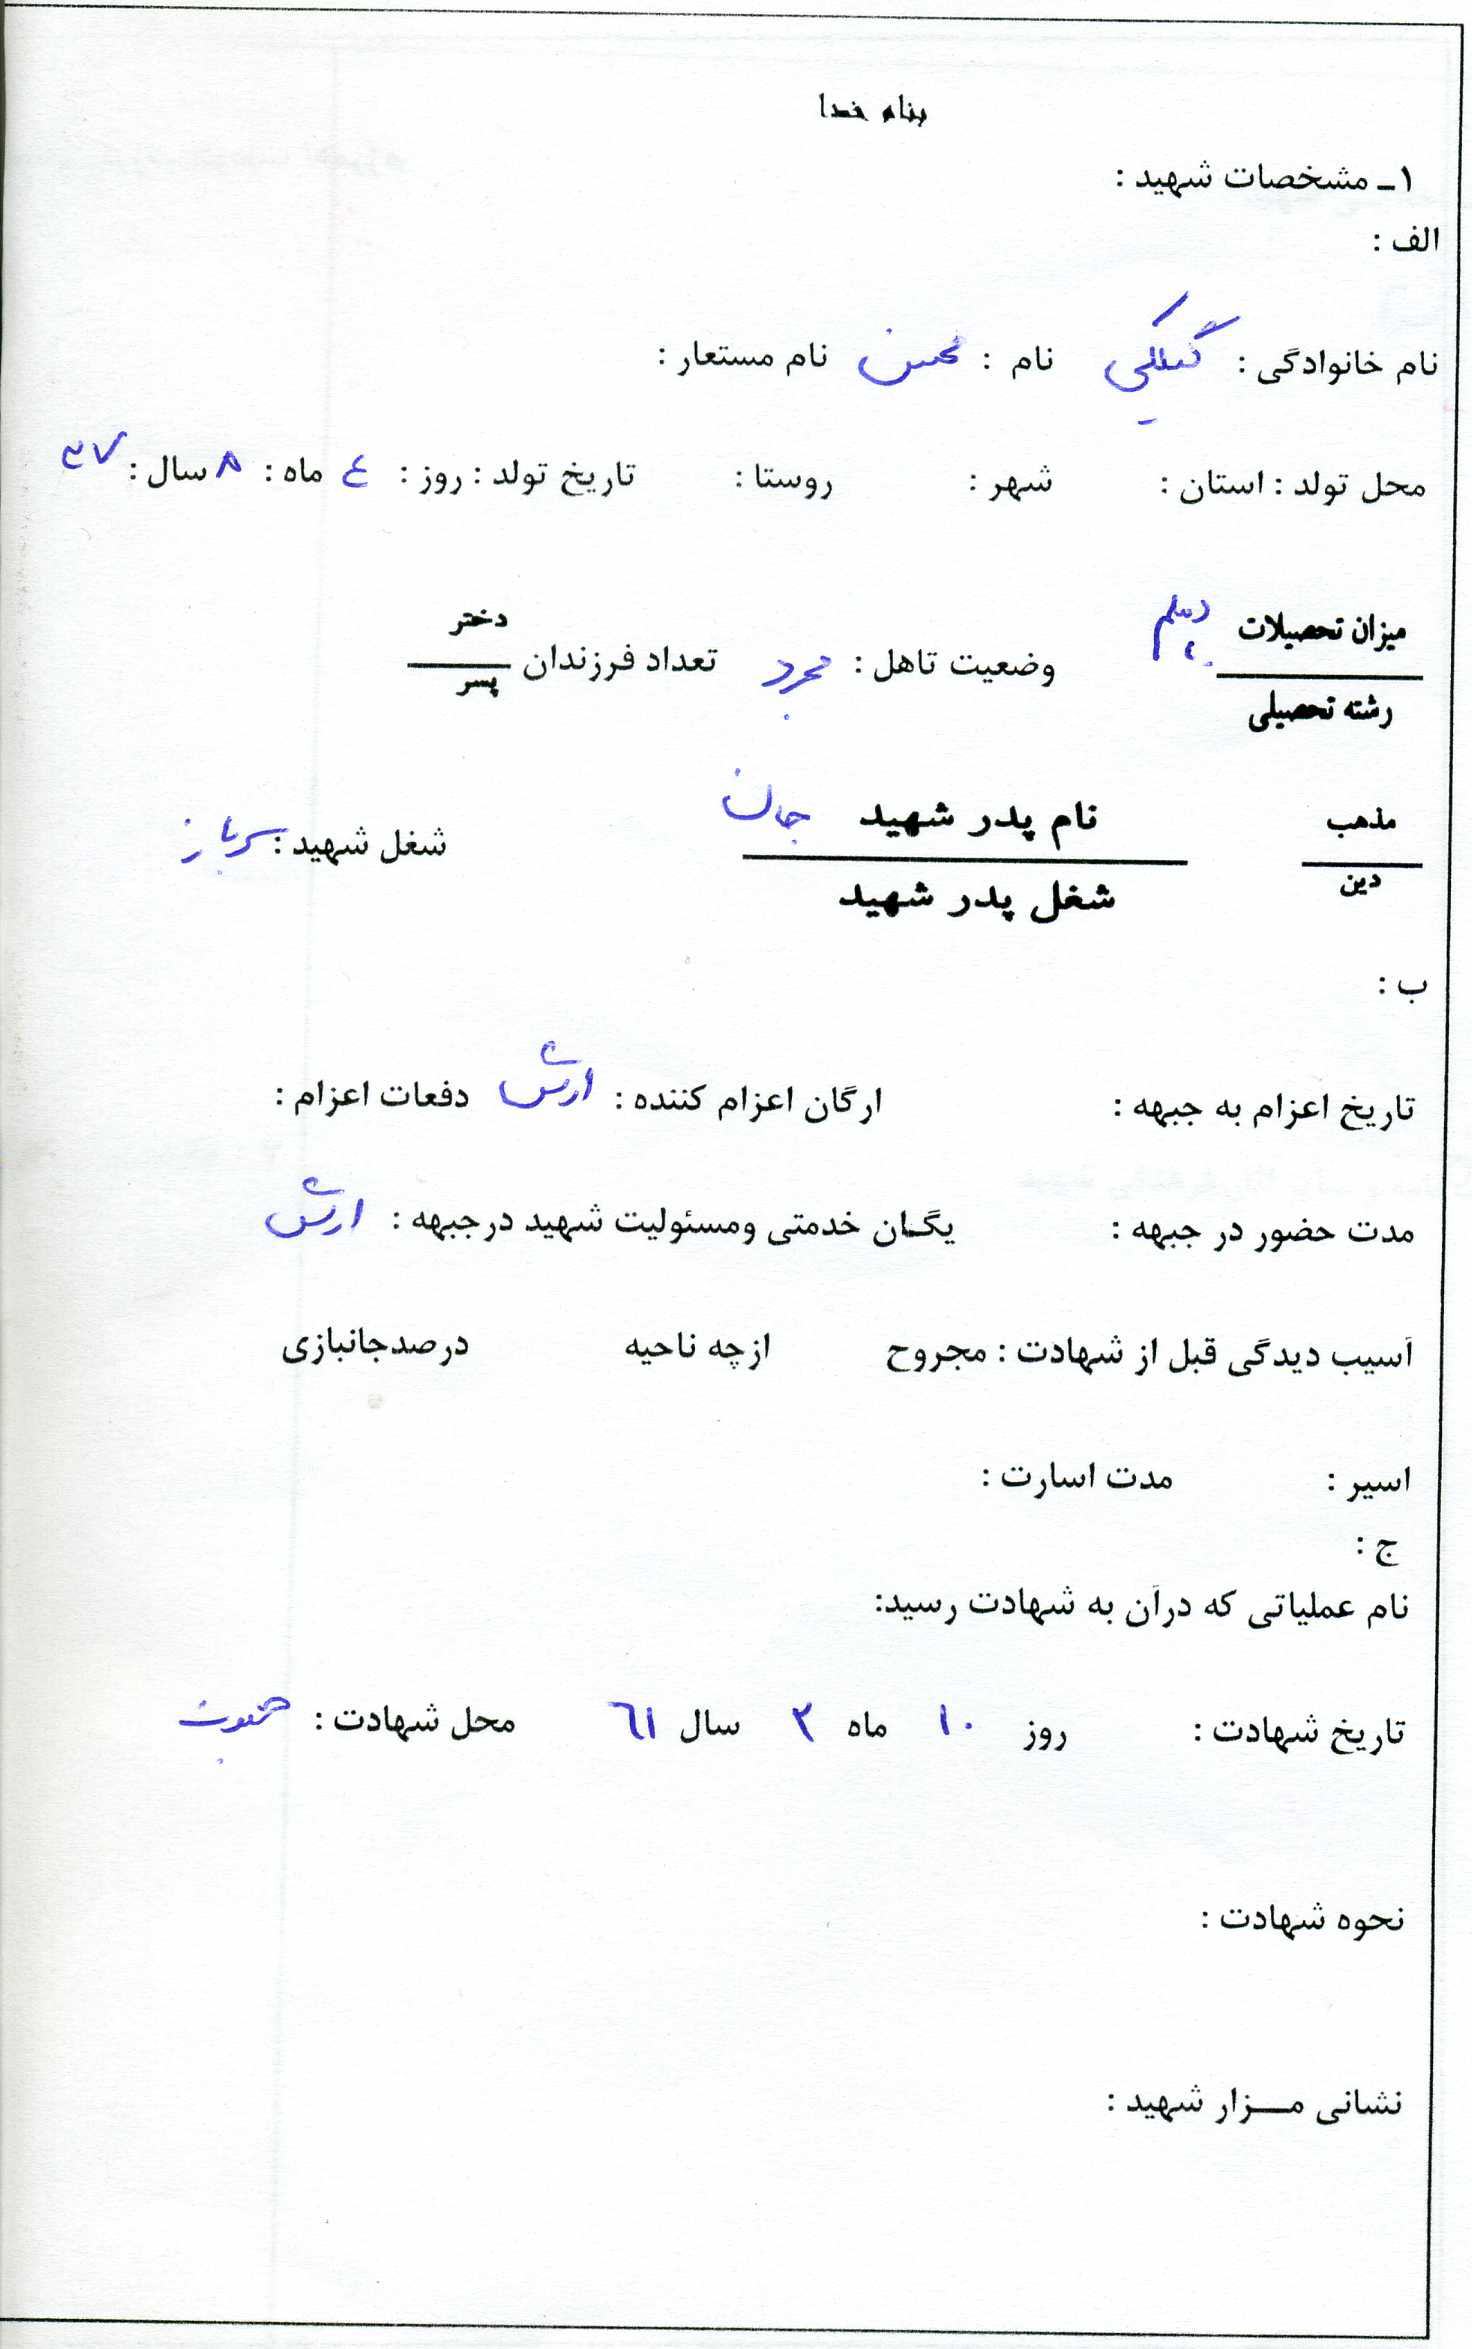 بنام خدا
۱ـ مشخصات شهید :
الف :
نام خانوادگی : گیلکی نام : محسن نام مستعار :
محل تولد : استان : شهر : روستا : تاریخ تولد : روز : ٤ ماه : ۸ سال : ۳۷
میزان تحصیلات دیپلم
رشته تحصیلی
وضعیت تاهل : مجرد تعداد فرزندان دختر
پسر
مذهب
دین
نام پدر شهید
شغل پدر شهید
شغل شهید : سرباز
ب :
تاریخ اعزام به جبهه : ارگان اعزام کننده : ارتش دفعات اعزام :
مدت حضور در جبهه : یگان خدمتی ومسئولیت شهید درجبهه : ارتش
آسیب دیدگی قبل از شهادت : مجروح ازچه ناحیه درصدجانبازی
اسیر : مدت اسارت :
ج :
نام عملیاتی که درآن به شهادت رسید:
تاریخ شهادت : روز ۱۰ ماه ۲ سال ٦۱ محل شهادت :
نحوه شهادت :
نشانی مـــزار شهید :